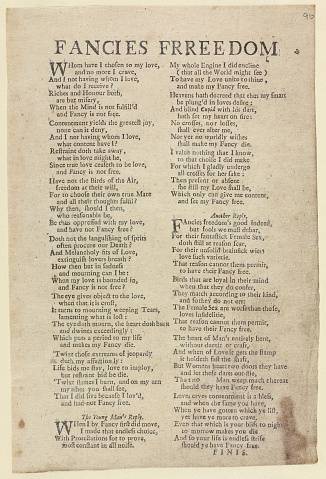 FANCIES FRREEDOM.
WHom have I chosen to my love,
and no more I crave,
And I not having whom I love,
what do I receive?
Riches and Honour both,
are but misery,
When the Mind is not fulfill'd
and Fancy is not free.
Contentment yields the greatest joy,
none can it deny,
And I not having whom I love,
what content have I?
Restraint doth take away,
what in love might be,
Since true love ceaseth to be love,
and Fancy is not free.
Have not the Birds of the Air,
freedom at their will,
For to choose their own true Mate
and all their thoughts fulfil?
Why then, should I then,
who reasonable be,
Be thus oppressed with my love,
and have not Fancy free?
Doth not the languishing of sprits
often procure our Death?
And Melancholy fits of Love,
extinguish lovers breath?
How then but in sadness
and mourning can I be:
When my love is bounded in,
and Fancy is not free?
The eye gives object to the love,
when that it is crost,
It turns to mourning weeping Tears,
lamenting what is lost:
The eye doth mourn, the heart doth burn
and dwines exceedingly:
Which puts a period to my life
and makes my Fancy die.
'Twixt those extreams of jeopardy
doth my affection ly:
Life bids me stay, love to imploy,
but restraint bids me die.
'Twixt flames I burn, and on my urn
my when you shall see,
That I did live because I lov'd,
and had not Fancy free.
The Young Man's Reply.
WHen I by Fancy first did move,
I made that endless choice,
With Protestations for to prove,
most constant in all noise.
My whole Engine I did encline
(that all the World might see)
To have my Love unite to thine,
and make my Fancy free.
Heavens hath decreed that thus my heart
be plung'd in loves desire;
And blind Cupid with his dart,
hath set my heart on fire:
No crosses, nor losses,
shall ever alter me,
Nor yet no worldly wishes
shall make my Fancy die.
I value nothing that I know,
to that choice I did make
For which I gladly undergo
all crosses for her sake:
Then present or absent
she still my Love shall be,
Which only can give me content,
and set my Fancy free.
Another Reply.
FAncies freedom's good indeed,
but fools we must debar,
For their fantastick Female Sex,
doth still at reason scar,
For their unsolid brainsick wit
love such varietie.
That reason cannot them permit,
to have their Fancy free.
Birds that are loyal in their mind
when that they do confer,
They match according to their kind,
and so they do not err:
The Female Sex are worse than those,
loves infidelitie,
That reason cannot them permit,
to have their Fancy free.
The heart of Man's entirely bent,
without deceit or guile,
And when of Love he gets the stamp
it holdeth fast the shaft,
But Womens heart two doors they have
and let these darts out flie,
The Man weep much thereat
should they have Fancy free.
Lovu craves contentment is a bless,
and when the same you have,
When ye have gotten which ye list,
yet have ye more to crave,
Even that which is your bliss to night
to morrow makes you die
And so your life is endless strife
should ye have Fancy free.
FINIS.